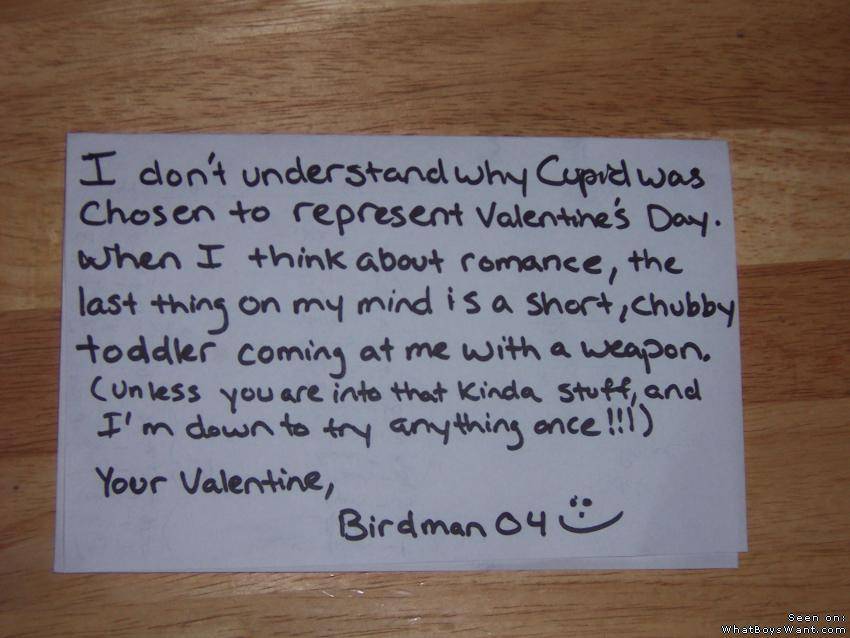 I don't understand why Cupid was
chosen to represent Valentine's Day.
When I think about romance, the
last thing on my mind is a short, chubby
toddler coming at me with a weapon.
(unless you are into that kinda stuff, and
I'm down to try anything once!!!)
Your Valentine,
Birdman 04
Seen on:
WhatBoysWant.com